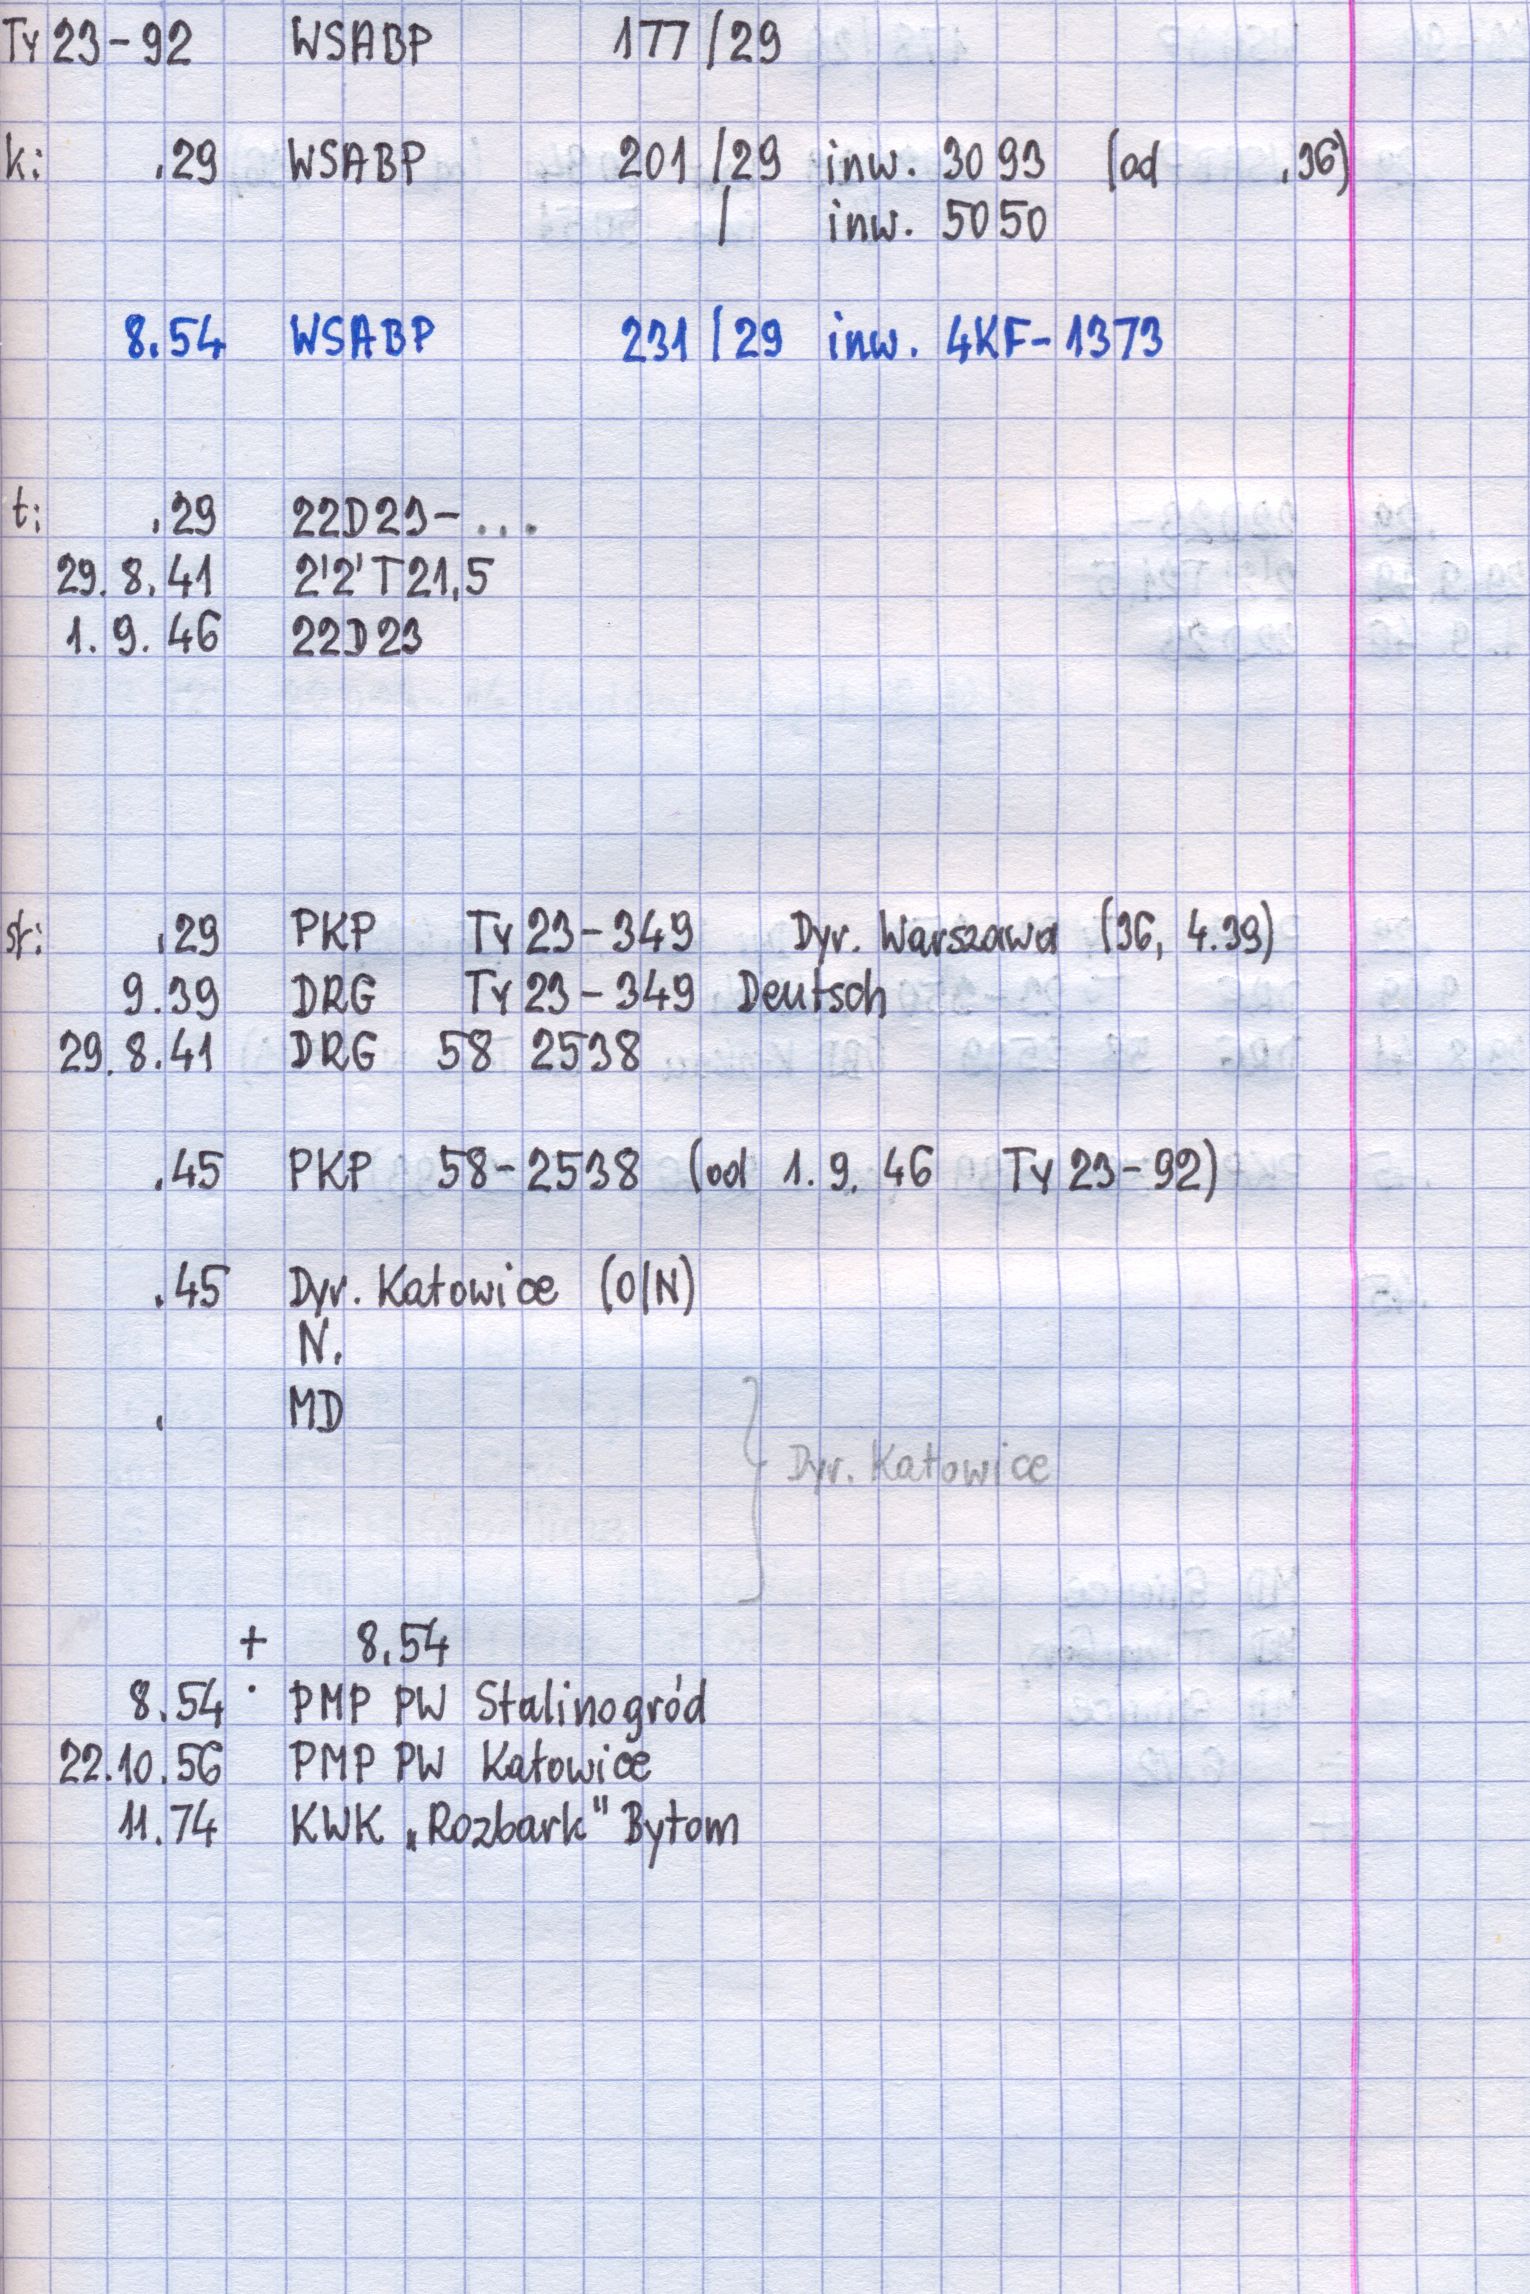 Ty 23-92 WSABP 177/29
k: .29 WSABP 201/29 inw. 3093 (od .36)
/ inw. 5050
8.54 WSABP 231/29 inw. 4KF-1373
t: .29 22D23-...
29.8.41 2'2'T21,5
1.9.46 22D23
st: .29 PKP Ty 23-349 Dyr. Warszawa (36, 4.39)
9.39 DRG Ty 23-349 Deutsch
29.8.41 DRG 58 2538
.45 PKP 58-2538 (od 1.9.46 Ty 23-92)
.45 Dyr. Katowice (O/N)
N.
. MD
Dyr. Katowice
+ 8.54
8.54 PMP PW Stalinogród
22.10.56 PMP PW Katowice
11.74 KWK „Rozbark" Bytom